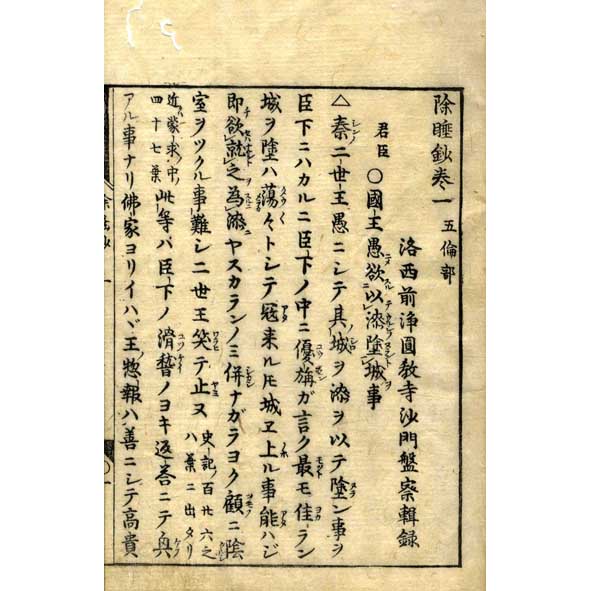 除睡鈔巻一 五倫部
洛西前浄圓教寺沙門盤察輯録
君臣 〇國王愚欲以漆塗城事
△秦ニ世王愚ニシテ其城ヲ漆ヲ以テ塗ン事ヲ
臣下ニハカルニ臣下ノ中ニ優旃ガ言ク最モ佳ラン
城ヲ塗ハ蕩々トシテ冦来ルトモ城ヱ上ル事能ハジ
即欲就之為漆ヤスカランノミ併ナガラヨク顧ニ陰
室ヲツクル事難シ二世王笑テ止ヌ 史記ノ百廿六之
八葉ニ出タリ
近蒙求中ノ
四十七葉 此等ハ臣下ノ滑稽ノヨキ返答ニテ興
アル事ナリ佛家ヨリイハヾ王惣報ハ善ニシテ高貴